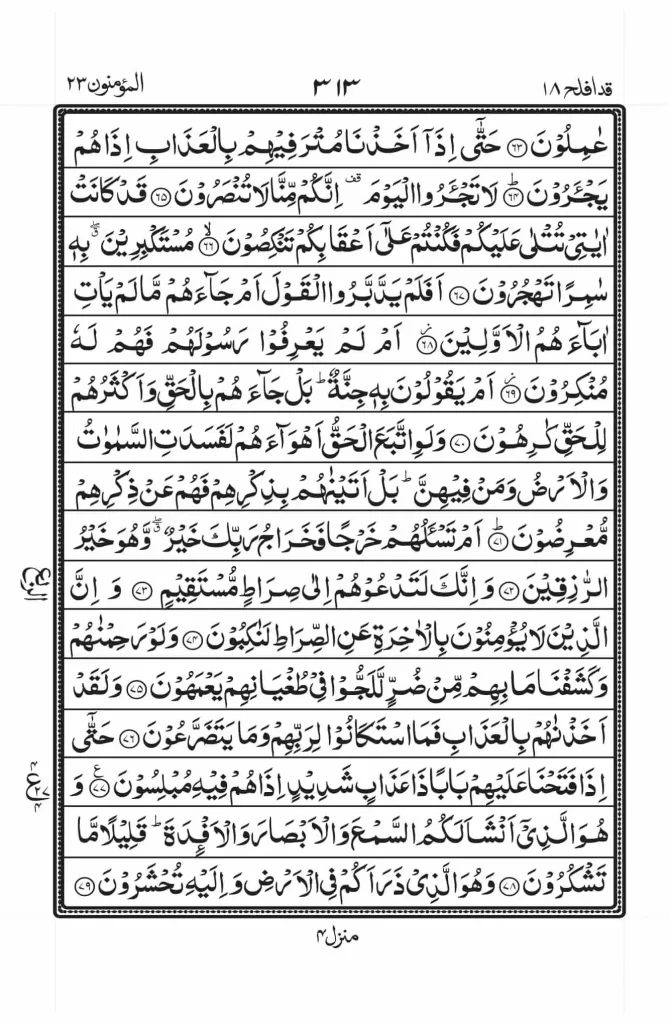 قد افلح ۱۸ ۳۱۳ المؤمنون ۲۳
عٰمِلُوْنَ ﴿۶۳﴾ حَتّٰٓى اِذَاۤ اَخَذْنَا مُتْرَفِيْهِمْ بِالْعَذَابِ اِذَا هُمْ
يَجْـَٔرُوْنَ ؕ﴿۶۴﴾ لَا تَجْـَٔرُوا الْيَوْمَ ۟ اِنَّكُمْ مِّنَّا لَا تُنْصَرُوْنَ ﴿۶۵﴾ قَدْ كَانَتْ
اٰيٰتِيْ تُتْلٰى عَلَيْكُمْ فَكُنْتُمْ عَلٰٓى اَعْقَابِكُمْ تَنْكِصُوْنَ ۙ﴿۶۶﴾ مُسْتَكْبِرِيْنَ ۖۗ بِهٖ
سٰمِرًا تَهْجُرُوْنَ ﴿۶۷﴾ اَفَلَمْ يَدَّبَّرُوا الْقَوْلَ اَمْ جَآءَهُمْ مَّا لَمْ يَاْتِ
اٰبَآءَهُمُ الْاَوَّلِيْنَ ؗ﴿۶۸﴾ اَمْ لَمْ يَعْرِفُوْا رَسُوْلَهُمْ فَهُمْ لَهٗ
مُنْكِرُوْنَ ؗ﴿۶۹﴾ اَمْ يَقُوْلُوْنَ بِهٖ جِنَّةٌ ؕ بَلْ جَآءَهُمْ بِالْحَقِّ وَاَكْثَرُهُمْ
لِلْحَقِّ كٰرِهُوْنَ ﴿۷۰﴾ وَلَوِ اتَّبَعَ الْحَقُّ اَهْوَآءَهُمْ لَفَسَدَتِ السَّمٰوٰتُ
وَالْاَرْضُ وَمَنْ فِيْهِنَّ ؕ بَلْ اَتَيْنٰهُمْ بِذِكْرِهِمْ فَهُمْ عَنْ ذِكْرِهِمْ
مُّعْرِضُوْنَ ؕ﴿۷۱﴾ اَمْ تَسْـَٔلُهُمْ خَرْجًا فَخَرَاجُ رَبِّكَ خَيْرٌ ۖۗ وَّهُوَ خَيْرُ
الرّٰزِقِيْنَ ﴿۷۲﴾ وَاِنَّكَ لَتَدْعُوْهُمْ اِلٰى صِرَاطٍ مُّسْتَقِيْمٍ ﴿۷۳﴾ وَاِنَّ
الَّذِيْنَ لَا يُؤْمِنُوْنَ بِالْاٰخِرَةِ عَنِ الصِّرَاطِ لَنٰكِبُوْنَ ﴿۷۴﴾ وَلَوْ رَحِمْنٰهُمْ
وَكَشَفْنَا مَا بِهِمْ مِّنْ ضُرٍّ لَّلَجُّوْا فِيْ طُغْيَانِهِمْ يَعْمَهُوْنَ ﴿۷۵﴾ وَلَقَدْ
اَخَذْنٰهُمْ بِالْعَذَابِ فَمَا اسْتَكَانُوْا لِرَبِّهِمْ وَمَا يَتَضَرَّعُوْنَ ﴿۷۶﴾ حَتّٰٓى
اِذَا فَتَحْنَا عَلَيْهِمْ بَابًا ذَا عَذَابٍ شَدِيْدٍ اِذَا هُمْ فِيْهِ مُبْلِسُوْنَ ﴿۷۷﴾ وَ
هُوَ الَّذِيْۤ اَنْشَاَ لَكُمُ السَّمْعَ وَالْاَبْصَارَ وَالْاَفْـِٕدَةَ ؕ قَلِيْلًا مَّا
تَشْكُرُوْنَ ﴿۷۸﴾ وَهُوَ الَّذِيْ ذَرَاَكُمْ فِي الْاَرْضِ وَاِلَيْهِ تُحْشَرُوْنَ ﴿۷۹﴾
منزل ۴